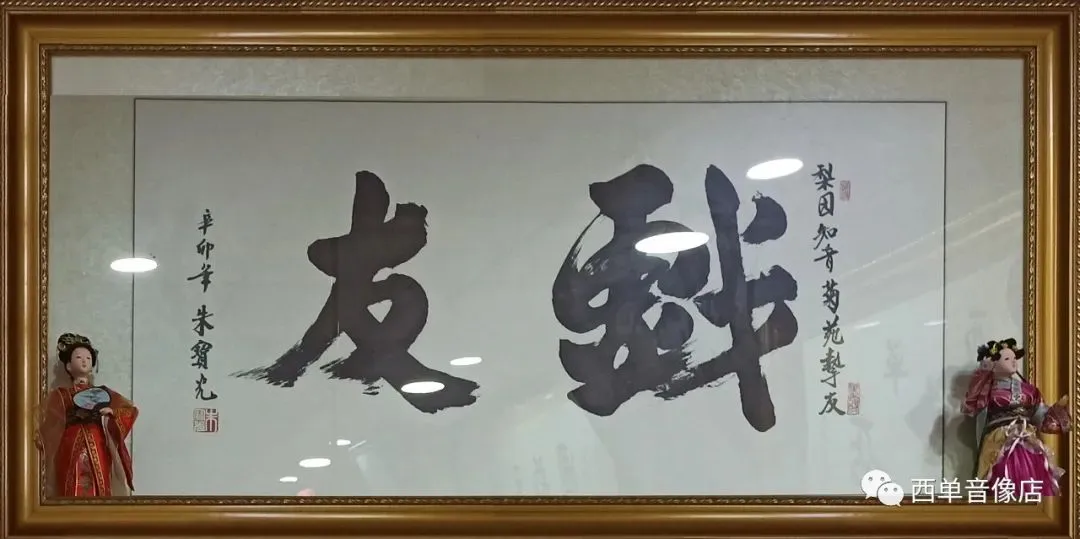 梨园知音菊苑挚友
戲友
辛卯年 朱寶光
西单音像店